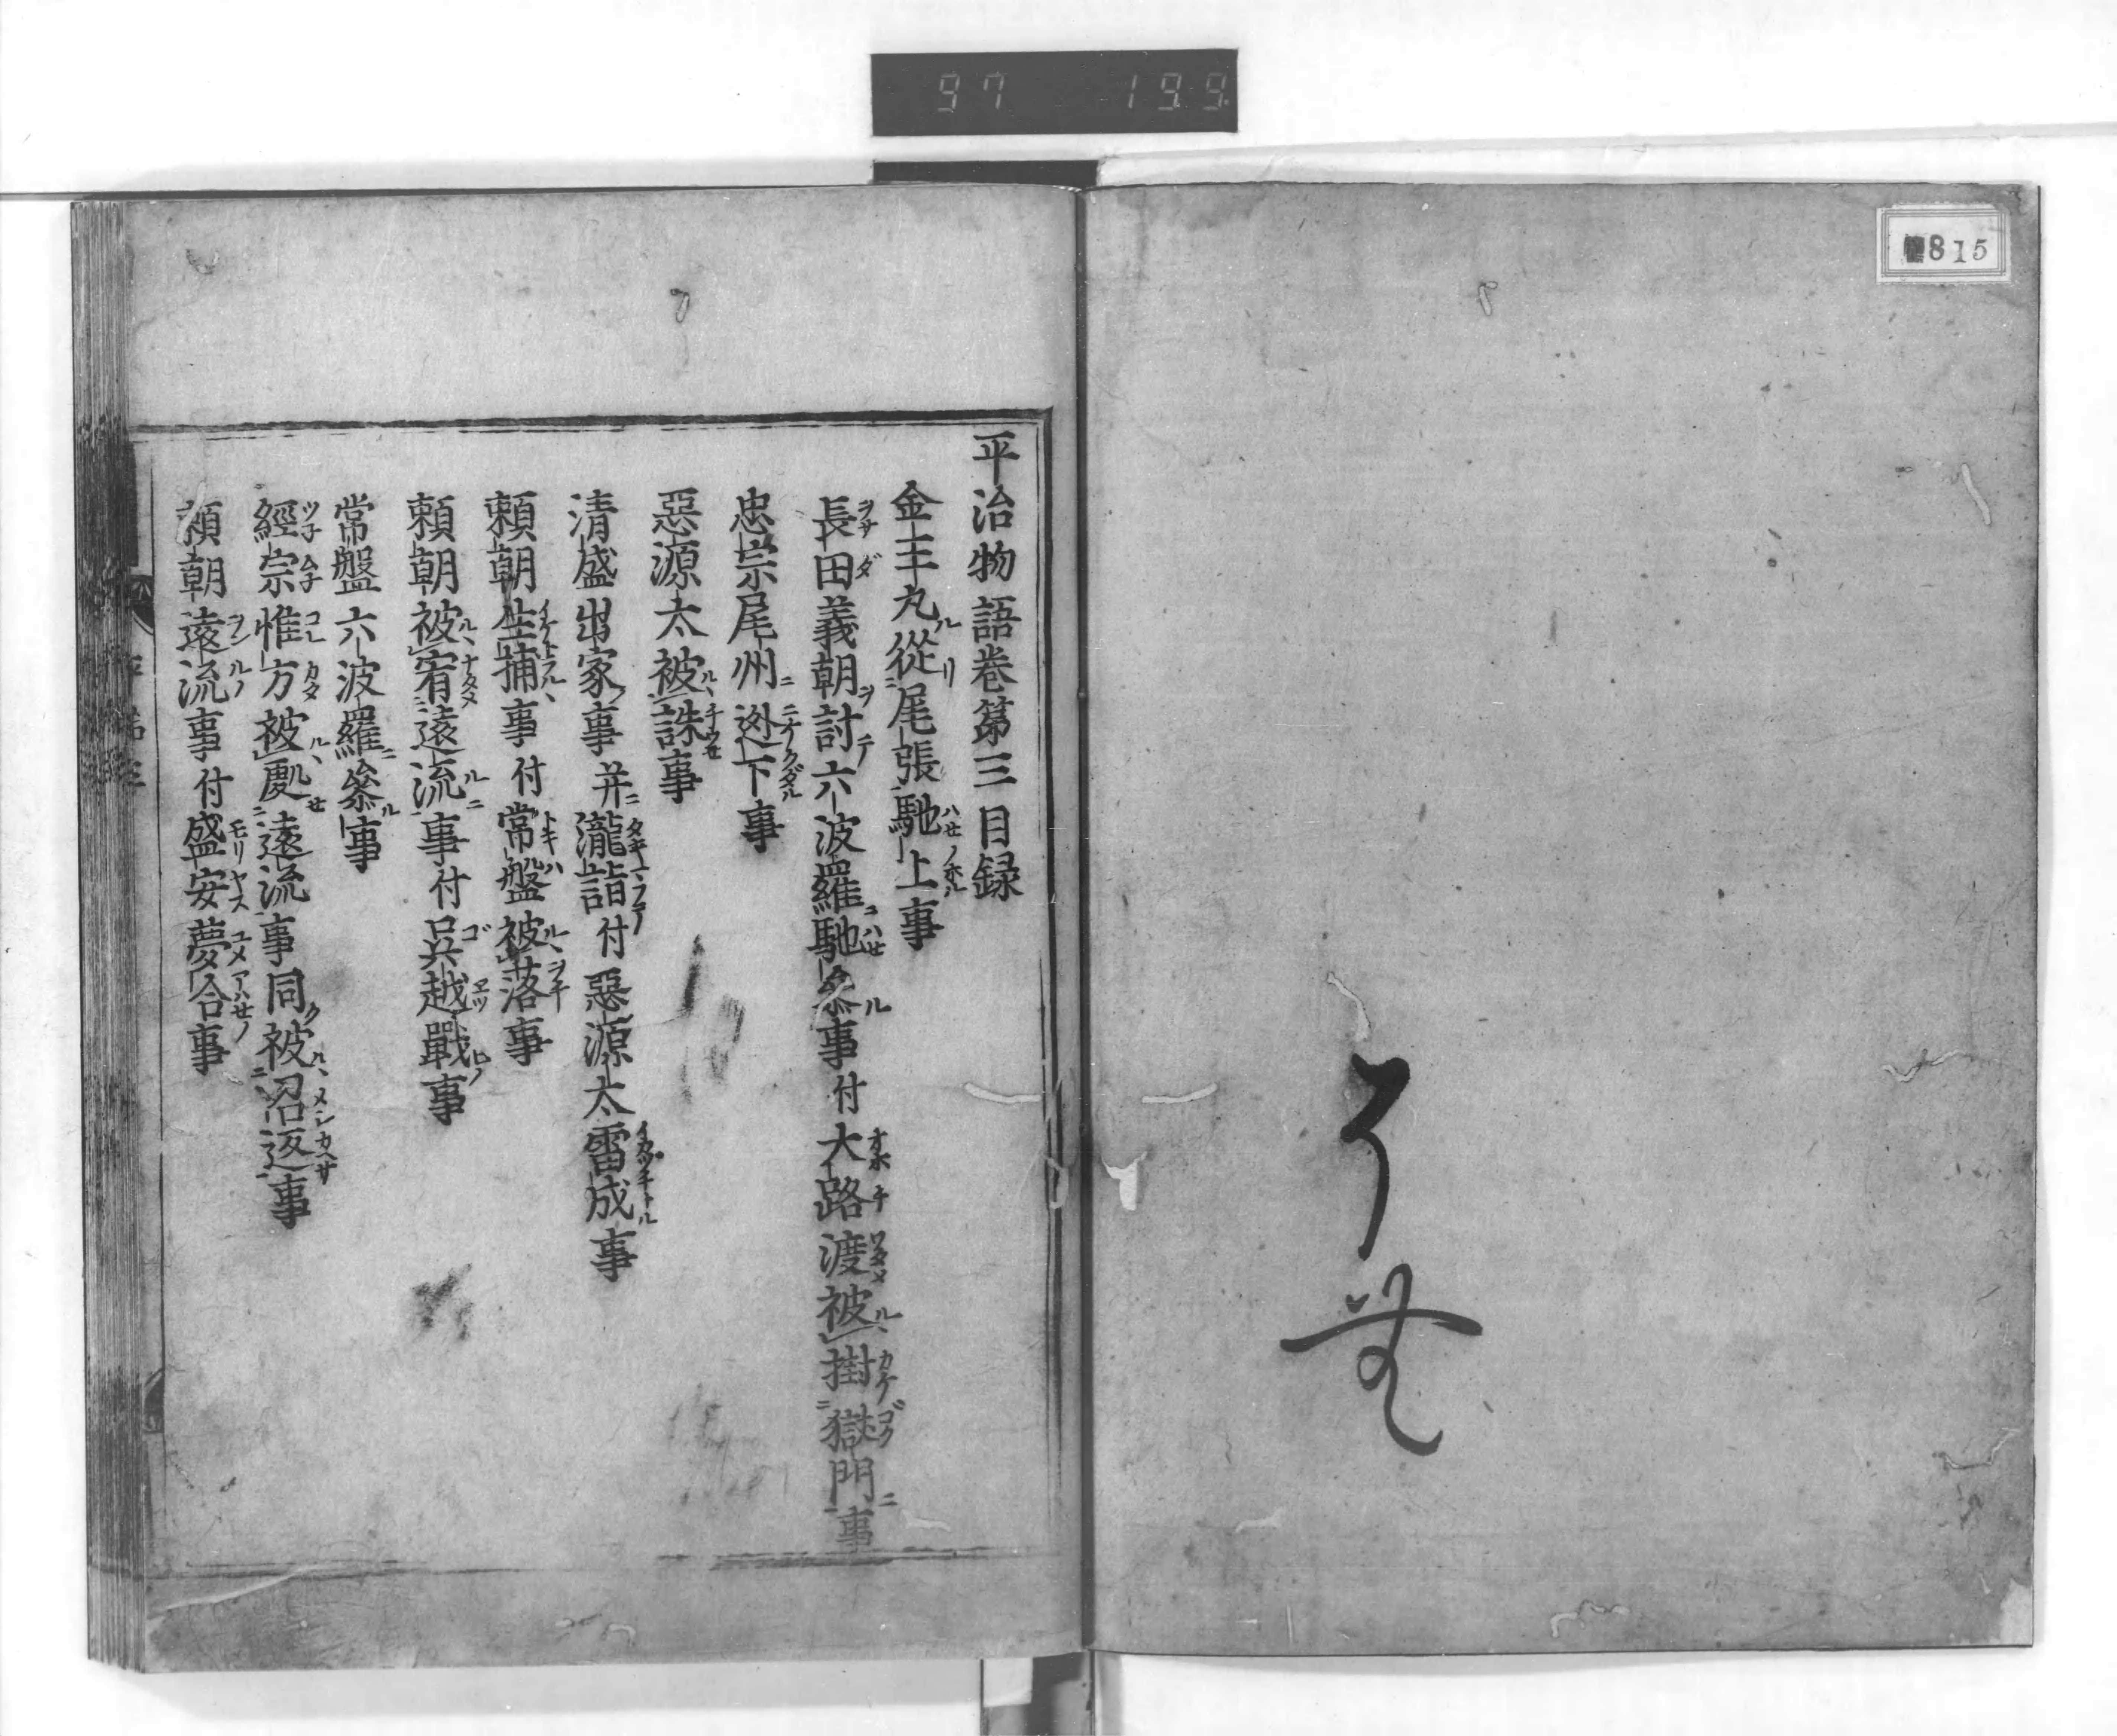 97 199.
815
平治物語巻第三目録
金王丸從尾張馳上事
長田義朝討六波羅馳參事付大路渡被掛獄門事
忠宗尾州迯下事
惡源太被誅事
清盛出家事并瀧詣付惡源太雷成事
頼朝生捕事付常盤被落事
頼朝被宥遠流事付呉越戰事
常盤六波羅參事
經宗惟方被處遠流事同被沼返事
頼朝遠流事付盛安夢合事